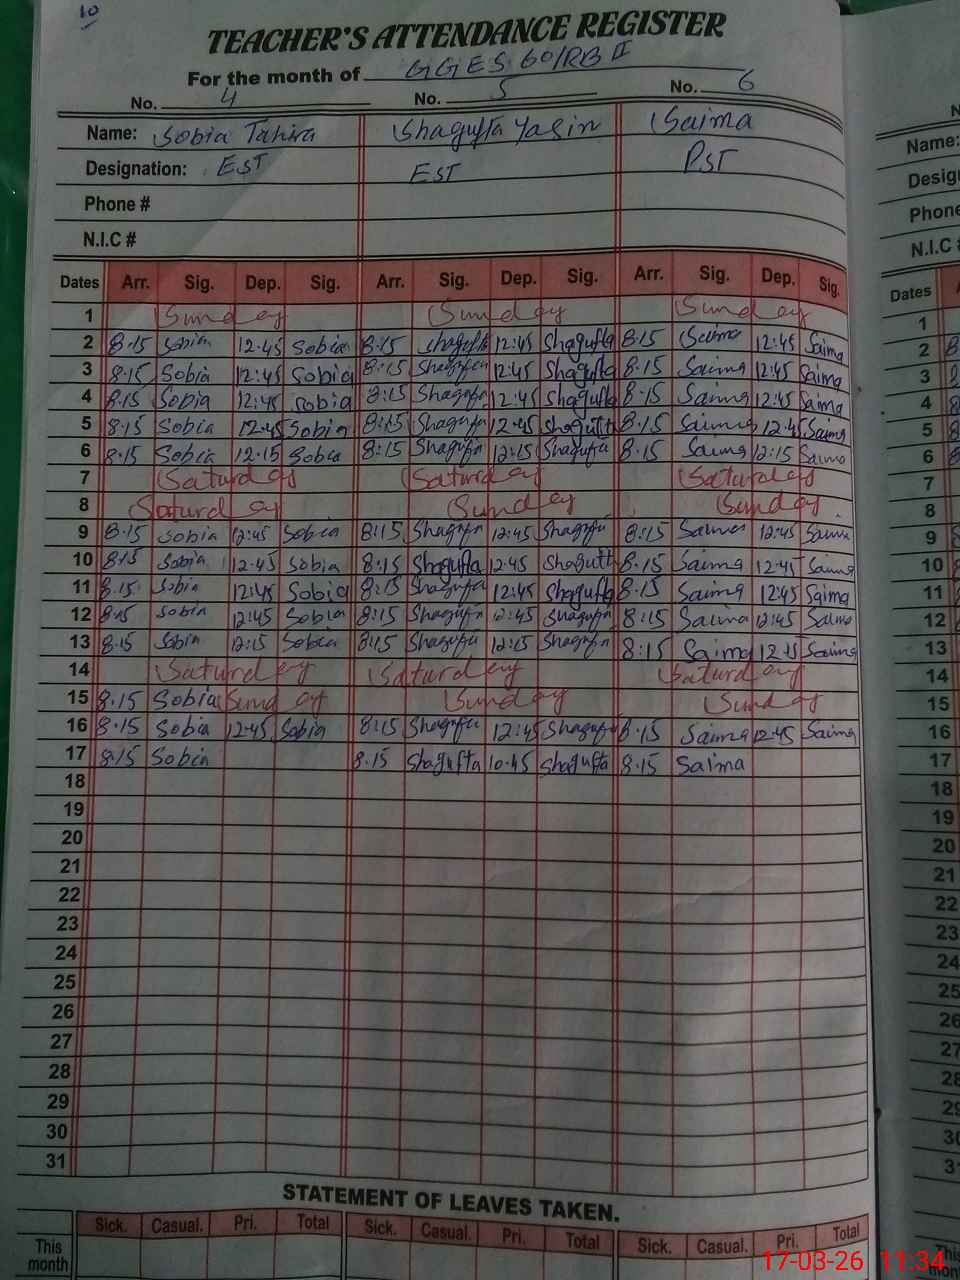 10
TEACHER'S ATTENDANCE REGISTER
For the month of GGES 60/RB II
No. 4 No. 5 No. 6
Name: Sobia Tahira Shagufta Yasin Saima
Designation: EST EST PST
Phone #
N.I.C #
Dates Arr. Sig. Dep. Sig. Arr. Sig. Dep. Sig. Arr. Sig. Dep. Sig.
1 Sunday Sunday Sunday
2 8.15 Sobia 12.45 Sobia 8:15 Shagufta 12:45 Shagufta 8.15 Saima 12:45 Saima
3 8.15 Sobia 12:45 Sobia 8:15 Shagufta 12:45 Shagufta 8.15 Saima 12:45 Saima
4 8.15 Sobia 12:45 Sobia 8:15 Shagufta 12:45 Shagufta 8.15 Saima 12:45 Saima
5 8.15 Sobia 12.45 Sobia 8:15 Shagufta 12:45 Shagufta 8.15 Saima 12:45 Saima
6 8.15 Sobia 12.15 Sobia 8:15 Shagufta 12:15 Shagufta 8.15 Saima 12:15 Saima
7 Saturday Saturday Saturday
8 Saturday Sunday Sunday
9 8.15 Sobia 12:45 Sobia 8:15 Shagufta 12:45 Shagufta 8:15 Saima 12:45 Saima
10 8:15 Sobia 12:45 Sobia 8:15 Shagufta 12:45 Shagufta 8.15 Saima 12:45 Saima
11 8.15 Sobia 12:45 Sobia 8:15 Shagufta 12:45 Shagufta 8.15 Saima 12:45 Saima
12 8:15 Sobia 12:45 Sobia 8:15 Shagufta 12:45 Shagufta 8:15 Saima 12:45 Saima
13 8.15 Sobia 12:15 Sobia 8:15 Shagufta 12:15 Shagufta 8:15 Saima 12:15 Saima
14 Saturday Saturday Saturday
15 8.15 Sobia Sunday Sunday Sunday
16 8.15 Sobia 12.45 Sobia 8:15 Shagufta 12:45 Shagufta 8.15 Saima 12:45 Saima
17 8.15 Sobia 8.15 Shagufta 10.45 Shagufta 8.15 Saima
18
19
20
21
22
23
24
25
26
27
28
29
30
31
STATEMENT OF LEAVES TAKEN.
Sick. Casual. Pri. Total Sick. Casual. Pri. Total Sick. Casual. Pri. Total
This month
17-03-26 11:34
Name:
Phone
N.I.C #
Dates
1
2
3
4
5
6
7
8
9
10
11
12
13
14
15
16
17
18
19
20
21
22
23
24
25
26
27
28
29
30